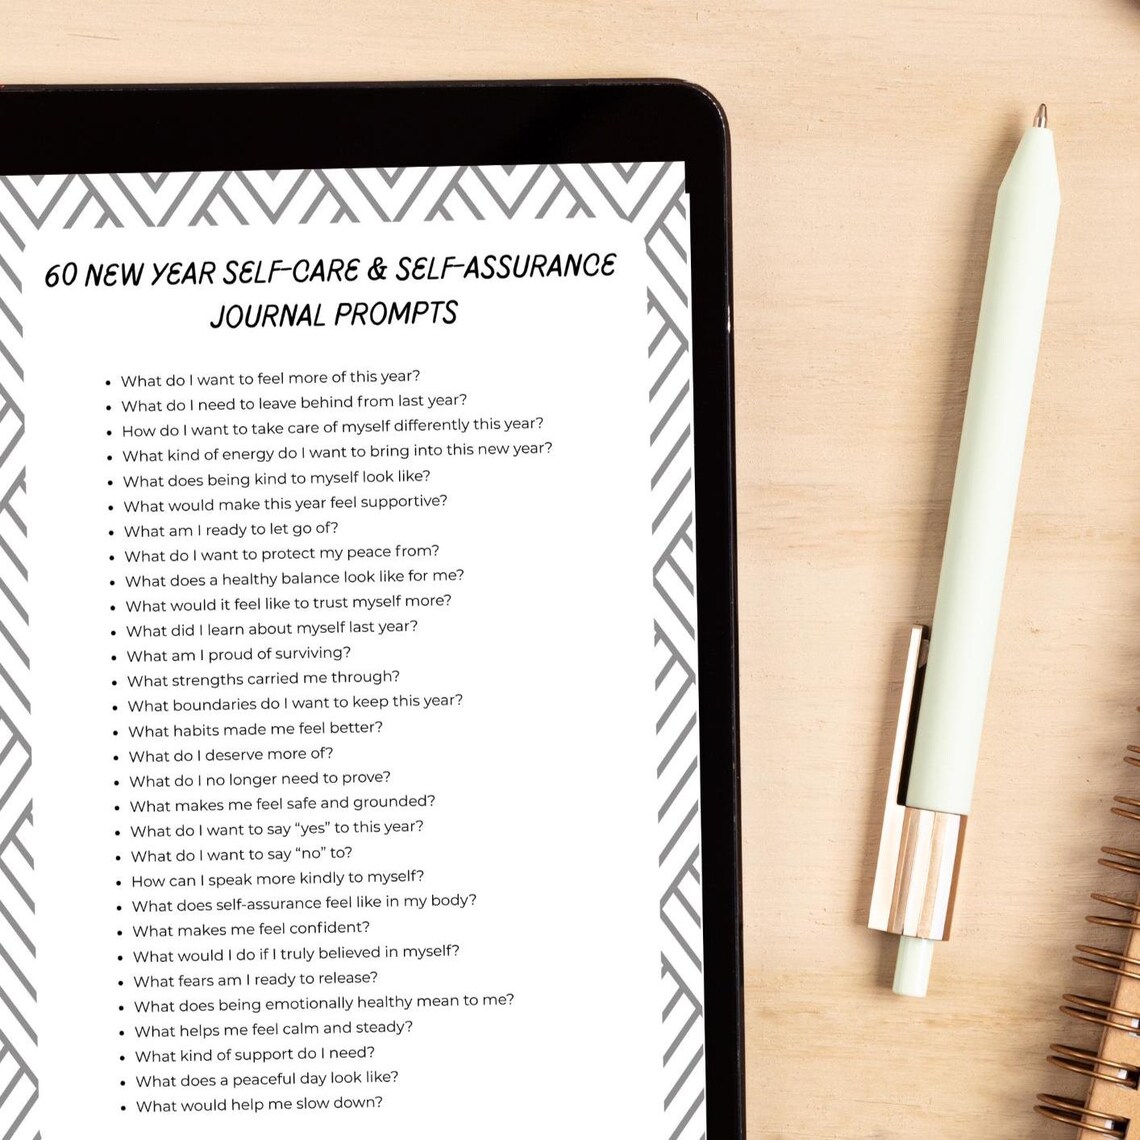 60 NEW YEAR SELF-CARE & SELF-ASSURANCE
JOURNAL PROMPTS
• What do I want to feel more of this year?
• What do I need to leave behind from last year?
• How do I want to take care of myself differently this year?
• What kind of energy do I want to bring into this new year?
• What does being kind to myself look like?
• What would make this year feel supportive?
• What am I ready to let go of?
• What do I want to protect my peace from?
• What does a healthy balance look like for me?
• What would it feel like to trust myself more?
• What did I learn about myself last year?
• What am I proud of surviving?
• What strengths carried me through?
• What boundaries do I want to keep this year?
• What habits made me feel better?
• What do I deserve more of?
• What do I no longer need to prove?
• What makes me feel safe and grounded?
• What do I want to say “yes” to this year?
• What do I want to say “no” to?
• How can I speak more kindly to myself?
• What does self-assurance feel like in my body?
• What makes me feel confident?
• What would I do if I truly believed in myself?
• What fears am I ready to release?
• What does being emotionally healthy mean to me?
• What helps me feel calm and steady?
• What kind of support do I need?
• What does a peaceful day look like?
• What would help me slow down?